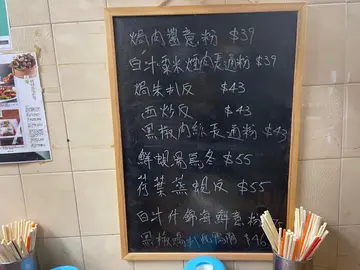 焗肉醬意粉 $39
白汁粟米烟肉長通粉 $39
焗朱扒反 $43
西炒反 $43
黑椒肉絲長通粉 $43
鮮蜆湯烏冬 $55
荷葉蒸蜆反 $55
白汁什錦海鮮意粉
黑椒 $46